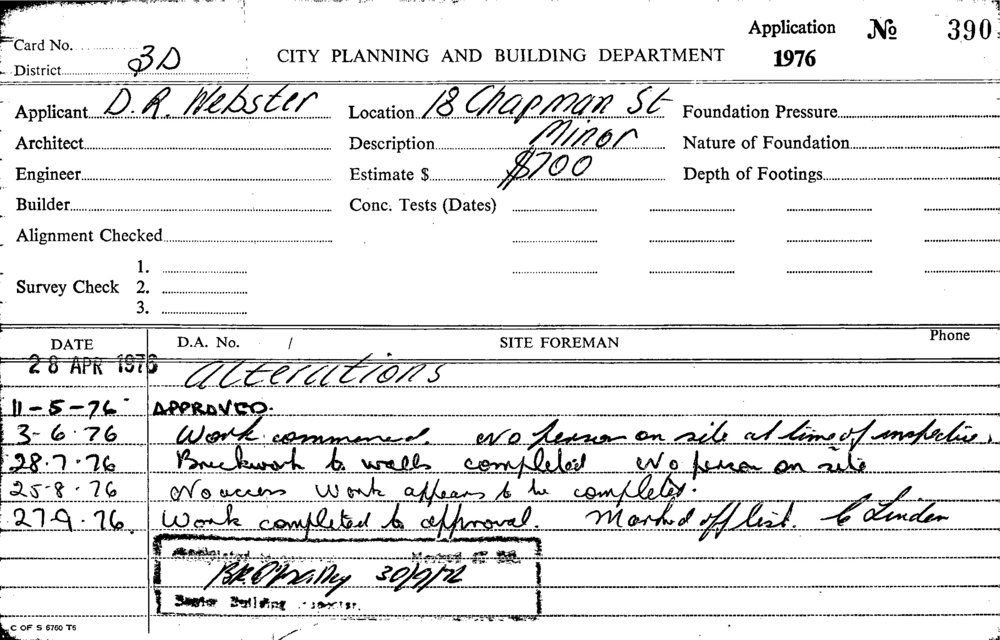 Application № 390
Card No.
1976
District 3D
CITY PLANNING AND BUILDING DEPARTMENT
Applicant D. R. Webster Location 18 Chapman St Foundation Pressure
Architect Description Minor Nature of Foundation
Engineer Estimate $ $700 Depth of Footings
Builder Conc. Tests (Dates)
Alignment Checked
1.
Survey Check 2.
3.
DATE D.A. No. / SITE FOREMAN Phone
28 APR 1976 Alterations
11-5-76 APPROVED.
3-6-76 Work commenced. No person on site at time of inspection.
28.7.76 Brickwork to walls completed No person on site
25-8-76 No access Work appears to be completed.
27-9-76 Work completed to approval. Marked off list. C Linden
30/9/76
Senior Building
C OF S 6760 T6